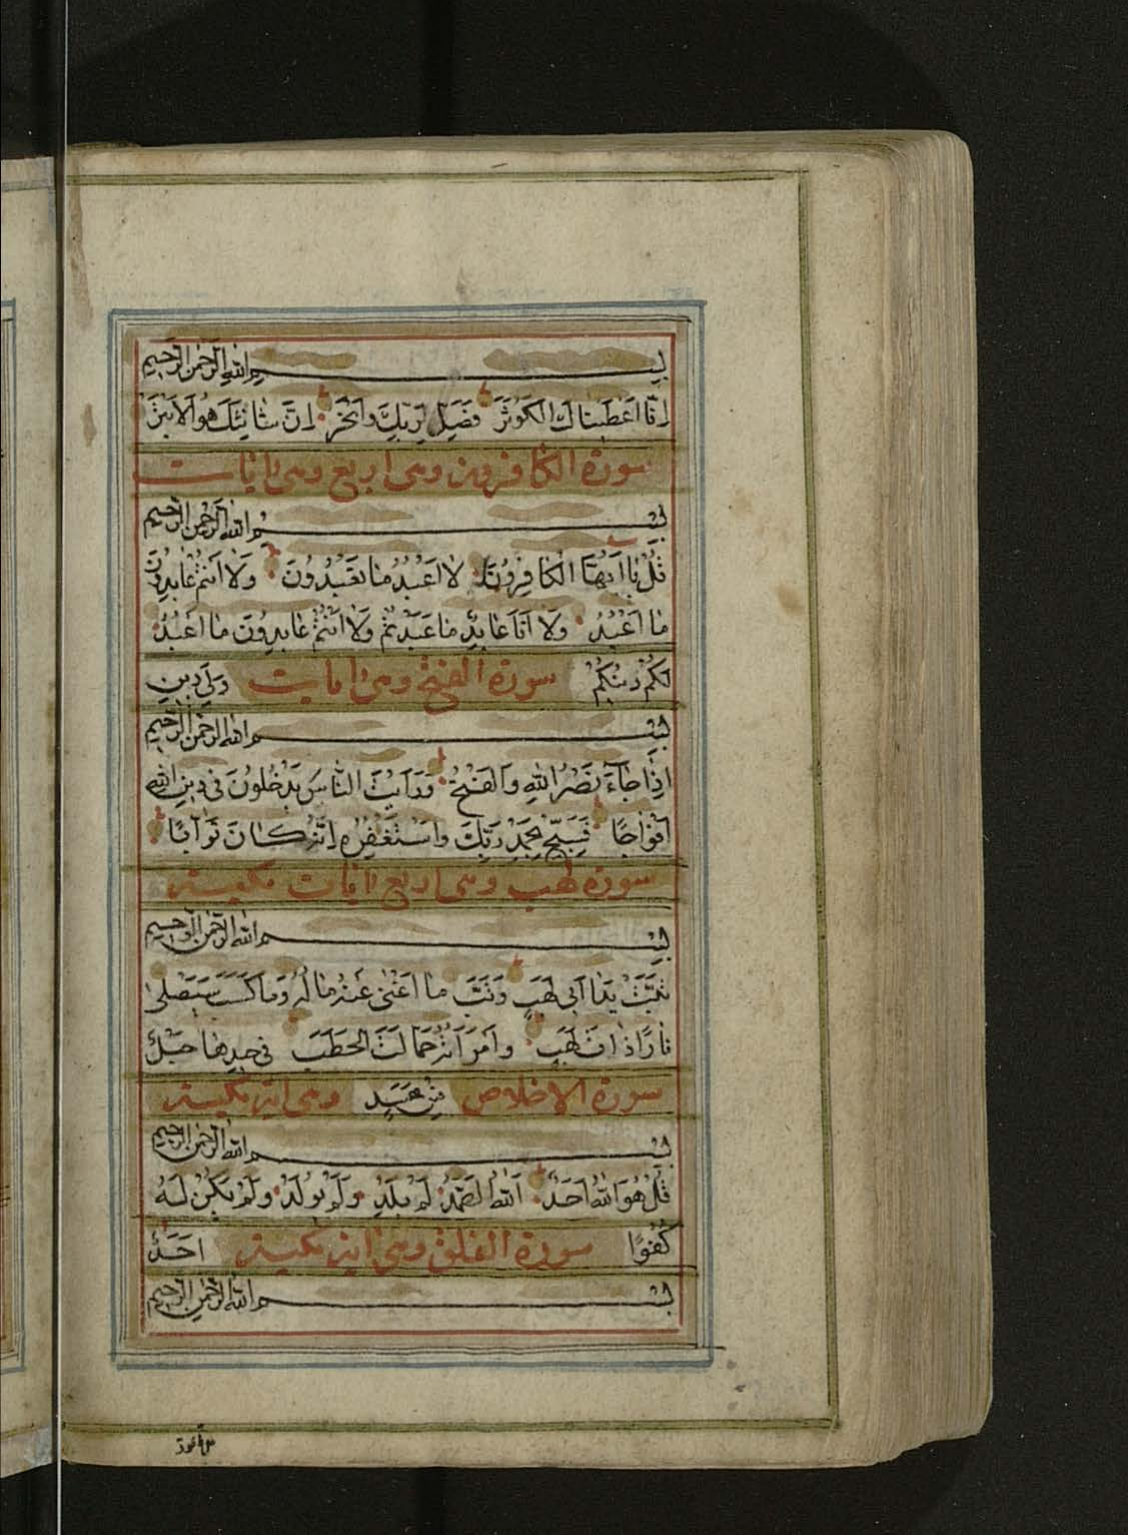 بسم الله الرحمن الرحيم
انا اعطيناك الكوثر فصل لربك وانحر ان شانئك هو الابتر
سورة الكافرون وهى اربع وهى اايات
بسم الله الرحمن الرحيم
قُلْ يا ايها الكافرون لا اعبد ما تعبدون ولا انتم عابدون
ما اعبد ولا انا عابد ما عبدتم ولا انتم عابدون ما اعبد
لكم دينكم سورة الفتح وهى ايات ولى دين
بسم الله الرحمن الرحيم
اذا جاء نصر الله والفتح ورايت الناس يدخلون فى دين الله
افواجا فسبح بحمد ربك واستغفره انه كان توابا
سورة لهب وهى اربع اايات مكية
بسم الله الرحمن الرحيم
تبت يدا ابى لهب وتب ما اغنى عنه ماله وما كسب سيصلى
نارا ذات لهب وامراته حمالت الحطب فى جيدها حبل
سورة الاخلاص من مسد وهى اية مكية
بسم الله الرحمن الرحيم
قل هو الله احد الله الصمد لم يلد ولم يولد ولم يكن له
كفوا سورة الفلق وهى اية مكية احد
بسم الله الرحمن الرحيم
قل اعوذ